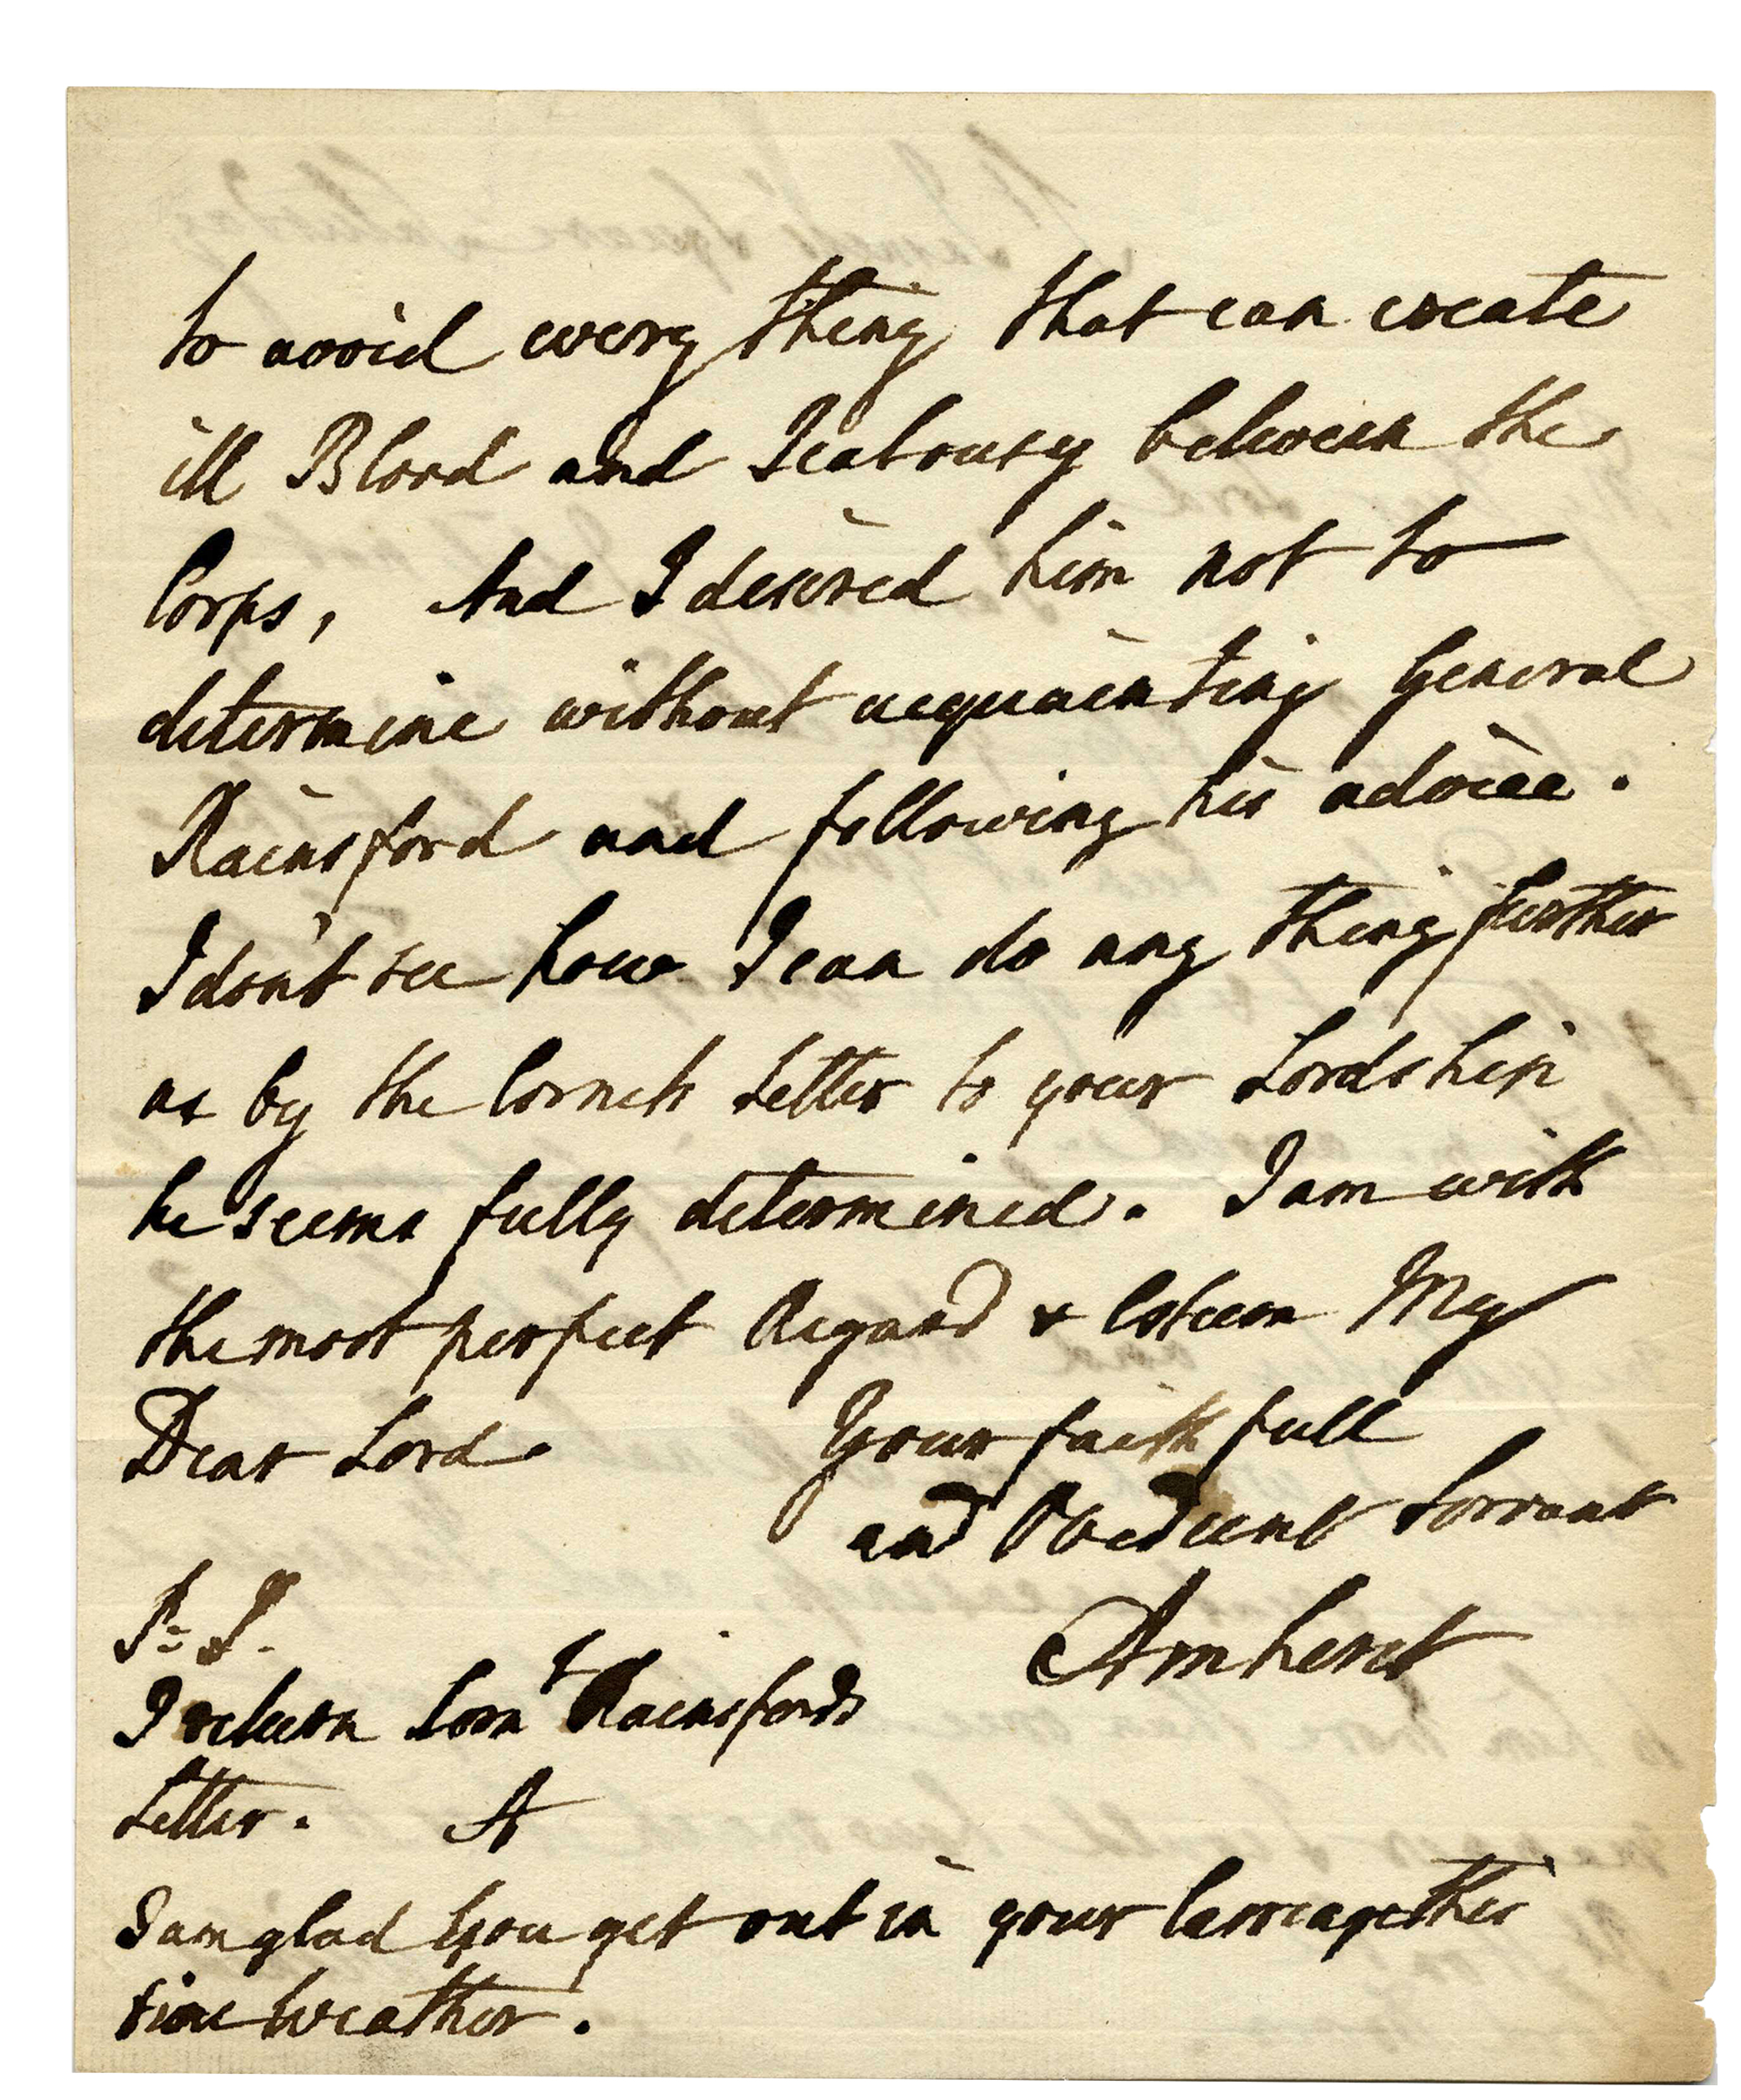 to avoid every thing that can create
ill Blood and Jealousy between the
Corps, And I desired him not to
determine without acquainting General
Rainsford and following his advice.
I don't see how I can do any thing further
as by the Cornets Letter to your Lordship
he seems fully determined. I am with
the most perfect Regard & Esteem My
Dear Lord
Your faithfull
and Obedient Servant
Amherst
P. S.
I return Rainsfords
Letter. A
I am glad you get out in your Carriage this
fine Weather.